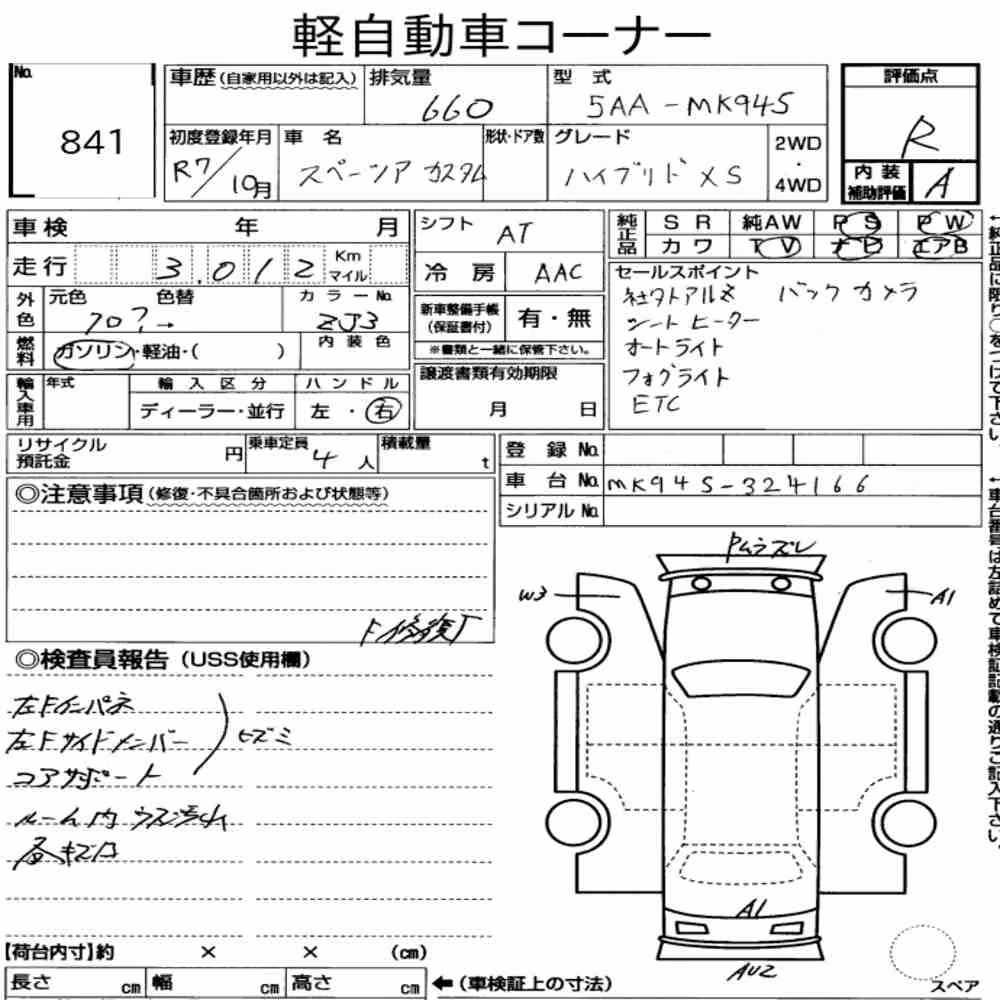 軽自動車コーナー
No. 841
車歴(自家用以外は記入)
排気量 660
型式 5AA-MK94S
評価点 R
内装補助評価 A
初度登録年月 R7/10月
車名 スペーシア カスタム
形状・ドア数
グレード ハイブリド XS
2WD・4WD
車検 年 月
走行 3,012 Km マイル
外色 元色 色替
カラーNo. ZJ3
燃料 ガソリン・軽油・( )
内装色
輸入車用 年式 輸入区分 ハンドル
ディーラー・並行 左・右
シフト AT
冷房 AAC
新車整備手帳(保証書付) 有・無
※書類と一緒に保管下さい。
譲渡書類有効期限
月 日
純正品 SR 純AW PS PW
カワ TV ナビ エアB
セールスポイント
バックカメラ
シートヒーター
オートライト
フォグライト
ETC
←純正品に限り○をつけて下さい。
リサイクル預託金 円
乗車定員 4人
積載量 t
登録No.
車台No. MK94S-324166
シリアルNo.
←車台番号は左詰めで車検証記載の通りご記入下さい。
◎注意事項(修復・不具合箇所および状態等)
F修復了
◎検査員報告(USS使用欄)
左Fインパネ
左Fサイドメンバー
コアサポート
ヒズミ
ルーム内 ウス汚れ
W3
A1
A1
AU2
スペア
【荷台内寸】約 × × (cm)
長さ cm 幅 cm 高さ cm
←(車検証上の寸法)